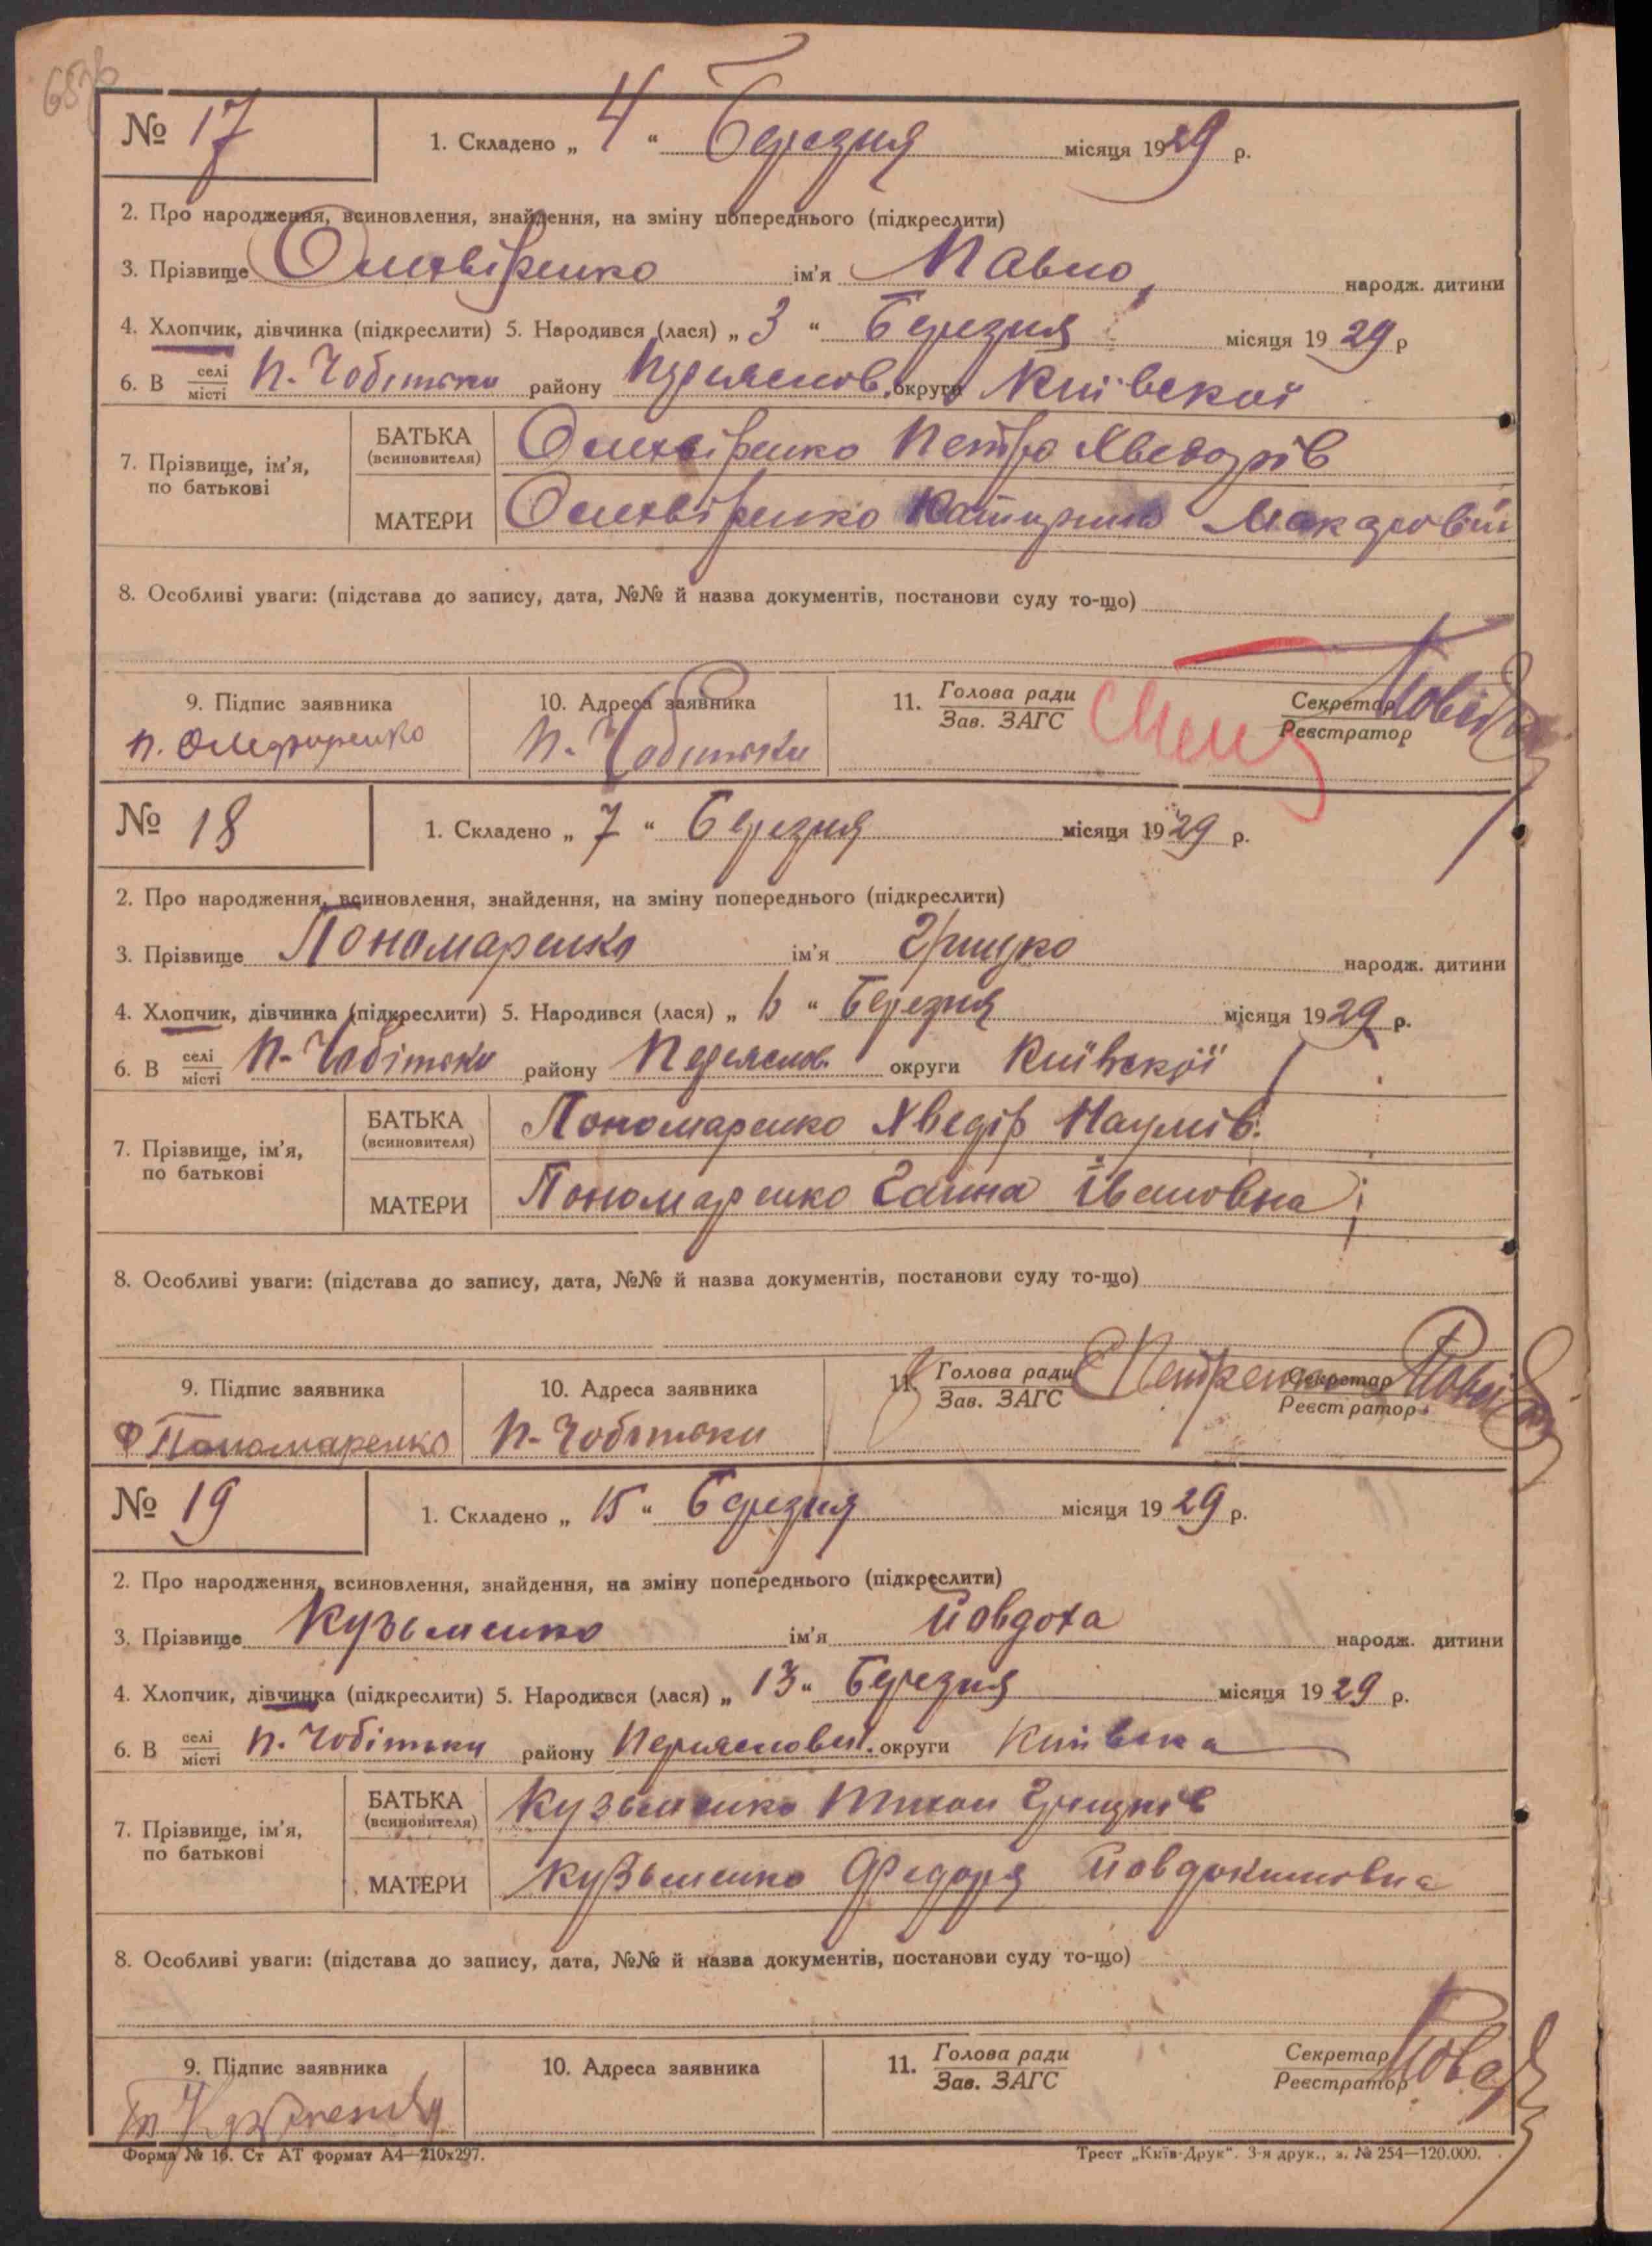 № 17
1. Складено „ 4 “ Березня місяця 1929 р.
2. Про народження, всиновлення, знайдення, на зміну попереднього (підкреслити)
3. Прізвище Олихвіренко ім'я Павло народж. дитини
4. Хлопчик, дівчинка (підкреслити) 5. Народився (лася) „ 3 “ Березня місяця 1929 р
6. В селі місті П. Чобітьки району округи Київської
7. Прізвище, ім'я, по батькові
БАТЬКА (всиновителя) Олихвіренко Петро Хведорів
МАТЕРИ Олихвіренко
8. Особливі уваги: (підстава до запису, дата, №№ й назва документів, постанови суду то-що)
9. Підпис заявника
10. Адреса заявника
11. Голова ради Зав. ЗАГС
Секретар Реєстратор
П. Чобитьки
№ 18
1. Складено „ 7 “ Березня місяця 1929 р.
2. Про народження, всиновлення, знайдення, на зміну попереднього (підкреслити)
3. Прізвище Пономаренко ім'я Грицко народж. дитини
4. Хлопчик, дівчинка (підкреслити) 5. Народився (лася) „ “ Березня місяця 1929 р.
6. В селі місті П. Чобітьки району Переяслов. округи Київської
7. Прізвище, ім'я, по батькові
БАТЬКА (всиновителя) Пономаренко Хведір Наумів.
МАТЕРИ Пономаренко Ганна Івановна
8. Особливі уваги: (підстава до запису, дата, №№ й назва документів, постанови суду то-що)
9. Підпис заявника
10. Адреса заявника
11. Голова ради Зав. ЗАГС Петренко
Секретар Реєстратор
Ф Пономаренко
П. Чобітьки
№ 19
1. Складено „ 15 “ Березня місяця 1929 р.
2. Про народження, всиновлення, знайдення, на зміну попереднього (підкреслити)
3. Прізвище Кузьменко ім'я Йовдоха народж. дитини
4. Хлопчик, дівчинка (підкреслити) 5. Народився (лася) „ 13 “ Березня місяця 1929 р.
6. В селі місті П. Чобітьки району округи Київська
7. Прізвище, ім'я, по батькові
БАТЬКА (всиновителя) Кузьменко Тихон Грицків
МАТЕРИ Кузьменко Федора Йовдокимовна
8. Особливі уваги: (підстава до запису, дата, №№ й назва документів, постанови суду то-що)
9. Підпис заявника
10. Адреса заявника
11. Голова ради Зав. ЗАГС
Секретар Реєстратор
Форма № 16. Ст АТ формат А4—210x297.
Трест „Київ-Друк“. 3-я друк., з. № 254—120.000.